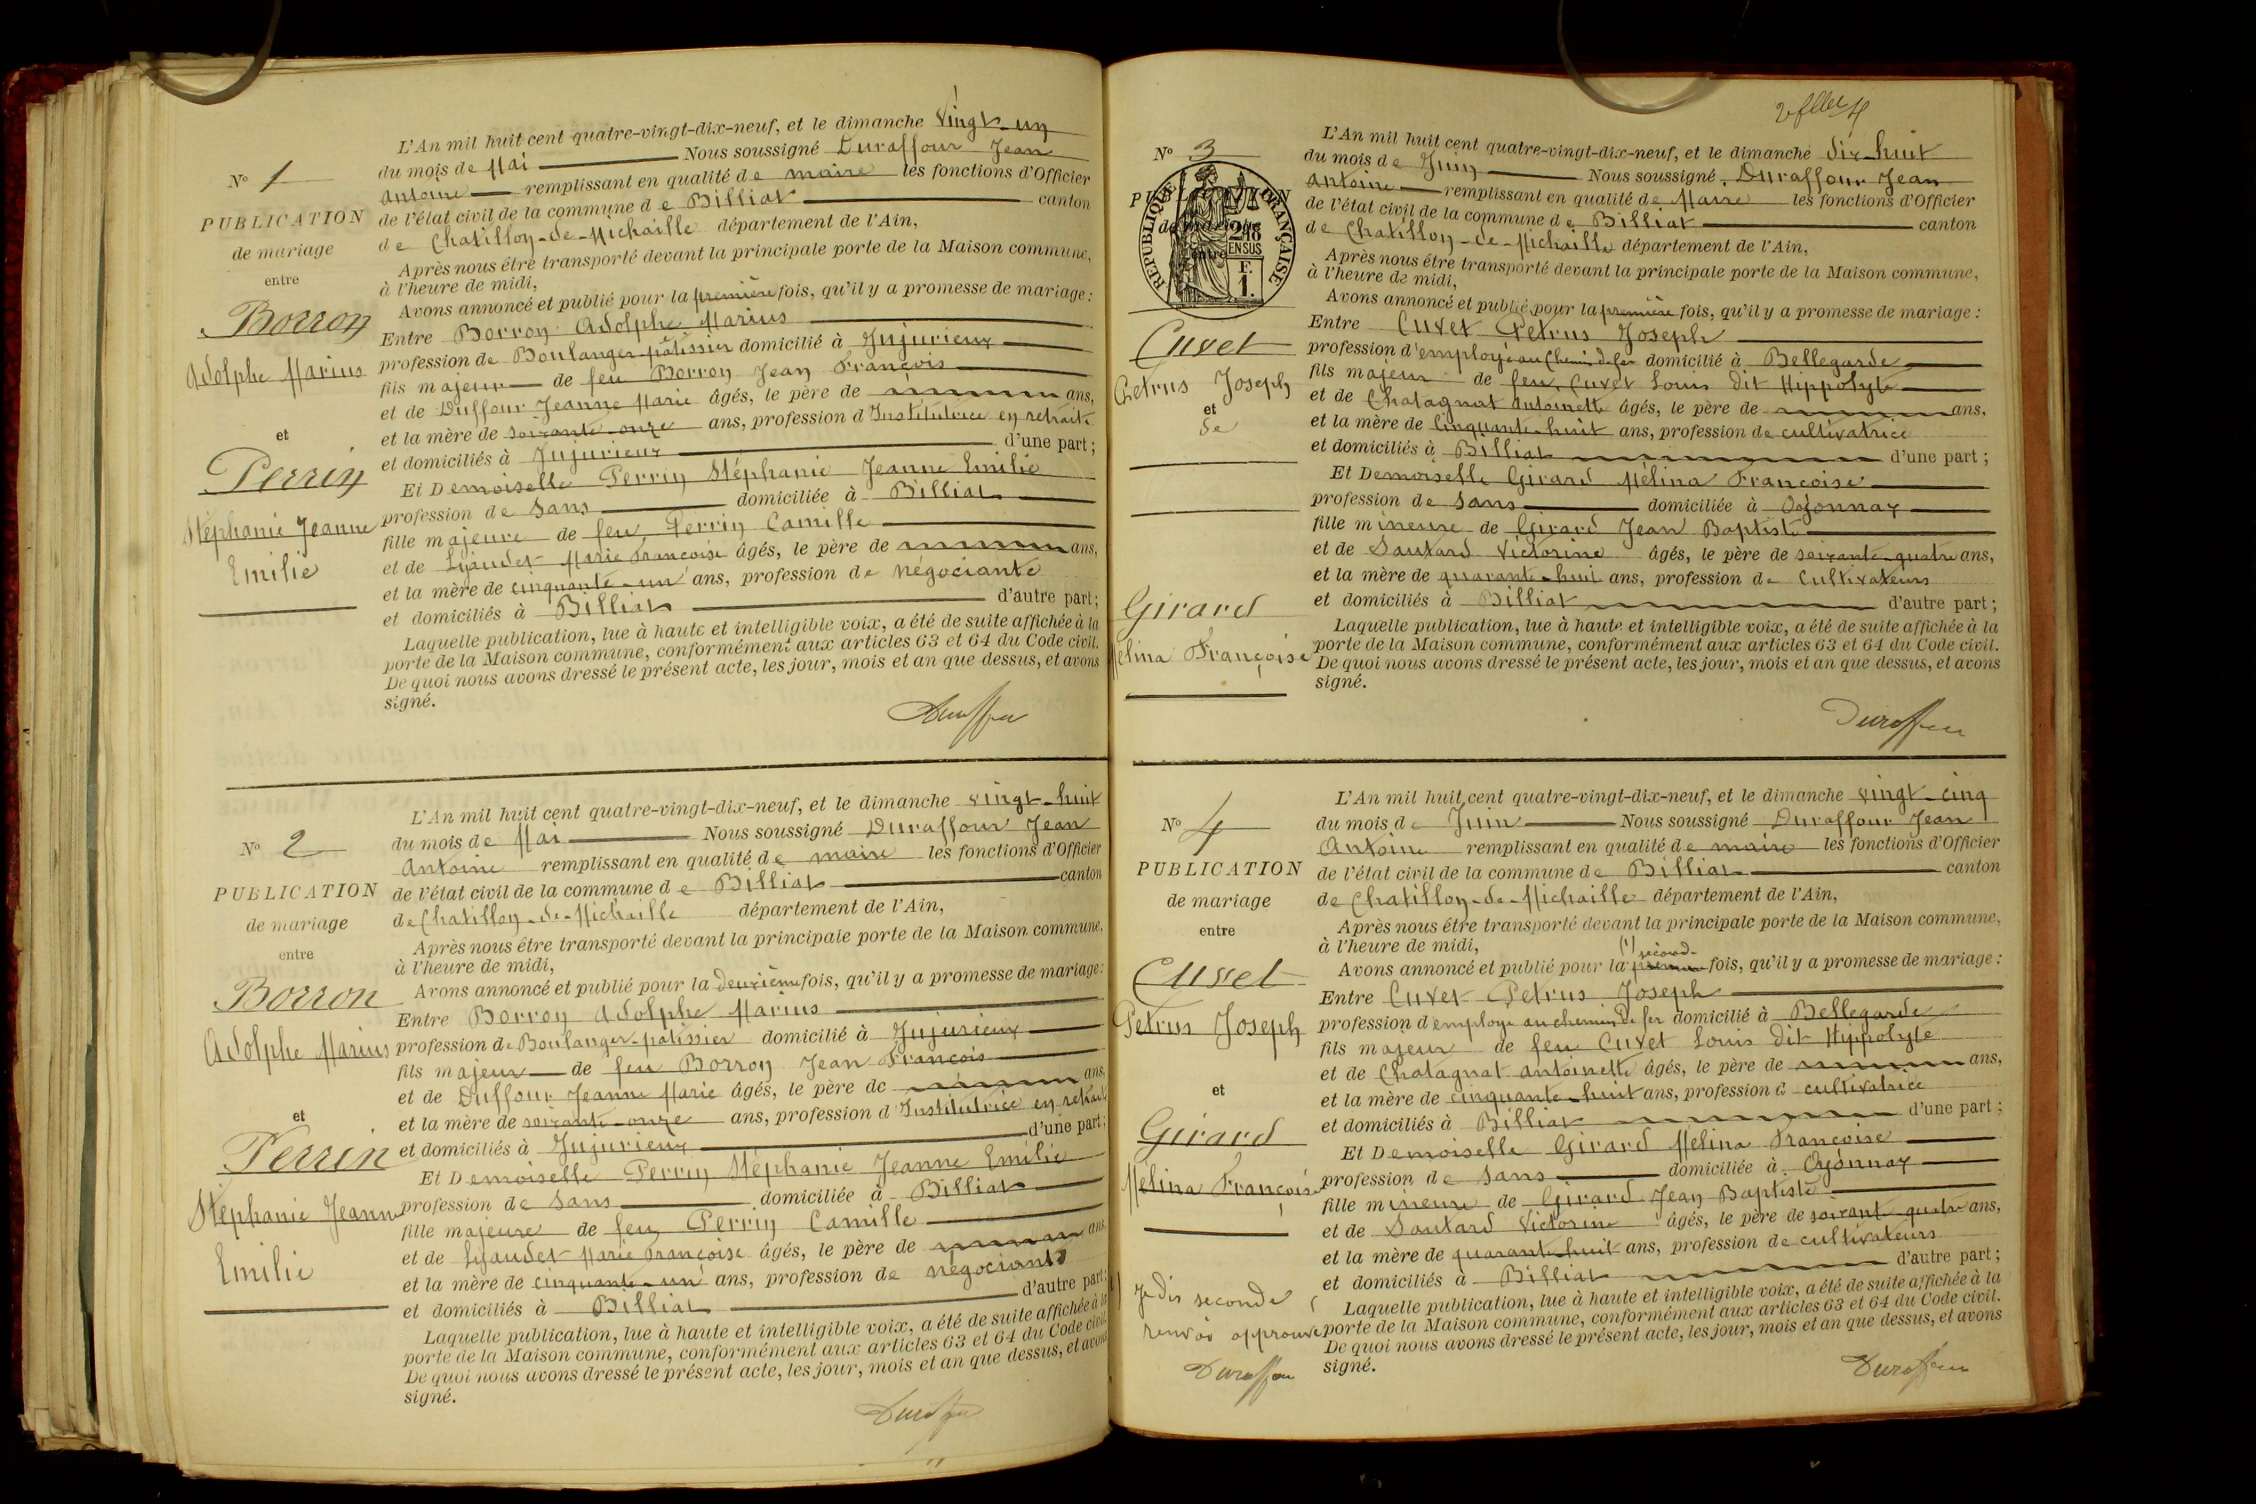 L'An mil huit cent quatre-vingt-dix-neuf, et le dimanche vingt-un
du mois de Mai Nous soussigné Duraffour Jean
Antoine remplissant en qualité de maire les fonctions d'Officier
de l'état civil de la commune de Billiat canton
de Chatillon-de-Michaille département de l'Ain,
Après nous être transporté devant la principale porte de la Maison commune,
à l'heure de midi,
Avons annoncé et publié pour la première fois, qu'il y a promesse de mariage :
Entre Borron Adolphe Marius
profession de Boulanger-pâtissier domicilié à Jujurieux
fils majeur de feu Borron Jean François
et de Duffour Jeanne Marie âgés, le père de ans,
et la mère de soixante-onze ans, profession d'Institutrice en retraite
et domiciliés à Jujurieux d'une part ;
Et Demoiselle Perrin Stéphanie Jeanne Emilie
profession de sans domiciliée à Billiat
fille majeure de feu Perrin Camille
et de Lyaudet Marie Françoise âgés, le père de ans,
et la mère de cinquante-un ans, profession de négociante
et domiciliés à Billiat d'autre part ;
Laquelle publication, lue à haute et intelligible voix, a été de suite affichée à la
porte de la Maison commune, conformément aux articles 63 et 64 du Code civil.
De quoi nous avons dressé le présent acte, les jour, mois et an que dessus, et avons
signé.
Duraffour
N° 1
PUBLICATION
de mariage
entre
Borron
Adolphe Marius
et
Perrin
Stéphanie Jeanne
Emilie
L'An mil huit cent quatre-vingt-dix-neuf, et le dimanche vingt-huit
du mois de Mai Nous soussigné Duraffour Jean
Antoine remplissant en qualité de maire les fonctions d'Officier
de l'état civil de la commune de Billiat canton
de Chatillon-de-Michaille département de l'Ain,
Après nous être transporté devant la principale porte de la Maison commune,
à l'heure de midi,
Avons annoncé et publié pour la deuxième fois, qu'il y a promesse de mariage :
Entre Borron Adolphe Marius
profession de Boulanger-pâtissier domicilié à Jujurieux
fils majeur de feu Borron Jean François
et de Duffour Jeanne Marie âgés, le père de ans,
et la mère de soixante-onze ans, profession d'Institutrice en retraite
et domiciliés à Jujurieux d'une part ;
Et Demoiselle Perrin Stéphanie Jeanne Emilie
profession de sans domiciliée à Billiat
fille majeure de feu Perrin Camille
et de Lyaudet Marie Françoise âgés, le père de ans,
et la mère de cinquante-un ans, profession de négociante
et domiciliés à Billiat d'autre part ;
Laquelle publication, lue à haute et intelligible voix, a été de suite affichée à la
porte de la Maison commune, conformément aux articles 63 et 64 du Code civil.
De quoi nous avons dressé le présent acte, les jour, mois et an que dessus, et avons
signé.
Duraffour
N° 2
PUBLICATION
de mariage
entre
Borron
Adolphe Marius
et
Perrin
Stéphanie Jeanne
Emilie
L'An mil huit cent quatre-vingt-dix-neuf, et le dimanche dix-huit
du mois de Juin Nous soussigné Duraffour Jean
Antoine remplissant en qualité de Maire les fonctions d'Officier
de l'état civil de la commune de Billiat canton
de Chatillon-de-Michaille département de l'Ain,
Après nous être transporté devant la principale porte de la Maison commune,
à l'heure de midi,
Avons annoncé et publié pour la première fois, qu'il y a promesse de mariage :
Entre Cuvet Petrus Joseph
profession d'employé au Chemin de fer domicilié à Bellegarde
fils majeur de feu Cuvet Louis dit Hippolyte
et de Chatagnat Antoinette âgés, le père de ans,
et la mère de cinquante-huit ans, profession de cultivatrice
et domiciliés à Billiat d'une part ;
Et Demoiselle Girard Mélina Françoise
profession de sans domiciliée à Oyonnax
fille mineure de Girard Jean Baptiste
et de Sautard Victorine âgés, le père de soixante-quatre ans,
et la mère de quarante-huit ans, profession de Cultivateurs
et domiciliés à Billiat d'autre part ;
Laquelle publication, lue à haute et intelligible voix, a été de suite affichée à la
porte de la Maison commune, conformément aux articles 63 et 64 du Code civil.
De quoi nous avons dressé le présent acte, les jour, mois et an que dessus, et avons
signé.
Duraffour
N° 3
RÉPUBLIQUE FRANÇAISE
2/10 EN SUS
F.
1.
de mariage
entre
Cuvet
Petrus Joseph
et
de
Girard
Mélina Françoise
L'An mil huit cent quatre-vingt-dix-neuf, et le dimanche vingt-cinq
du mois de Juin Nous soussigné Duraffour Jean
Antoine remplissant en qualité de maire les fonctions d'Officier
de l'état civil de la commune de Billiat canton
de Chatillon-de-Michaille département de l'Ain,
Après nous être transporté devant la principale porte de la Maison commune,
à l'heure de midi,
(1) second
Avons annoncé et publié pour la première fois, qu'il y a promesse de mariage :
Entre Cuvet Petrus Joseph
profession d'employé au chemin de fer domicilié à Bellegarde
fils majeur de feu Cuvet Louis dit Hippolyte
et de Chatagnat Antoinette âgés, le père de ans,
et la mère de cinquante-huit ans, profession d cultivatrice
et domiciliés à Billiat d'une part ;
Et Demoiselle Girard Mélina Françoise
profession de sans domiciliée à Oyonnax
fille mineure de Girard Jean Baptiste
et de Sautard Victorine âgés, le père de soixante-quatre ans,
et la mère de quarante-huit ans, profession de cultivateurs
et domiciliés à Billiat d'autre part ;
Laquelle publication, lue à haute et intelligible voix, a été de suite affichée à la
porte de la Maison commune, conformément aux articles 63 et 64 du Code civil.
De quoi nous avons dressé le présent acte, les jour, mois et an que dessus, et avons
signé.
Duraffour
N° 4
PUBLICATION
de mariage
entre
Cuvet
Petrus Joseph
et
Girard
Mélina Françoise
(1) Je dis seconde
renvoi approuvé
Duraffour